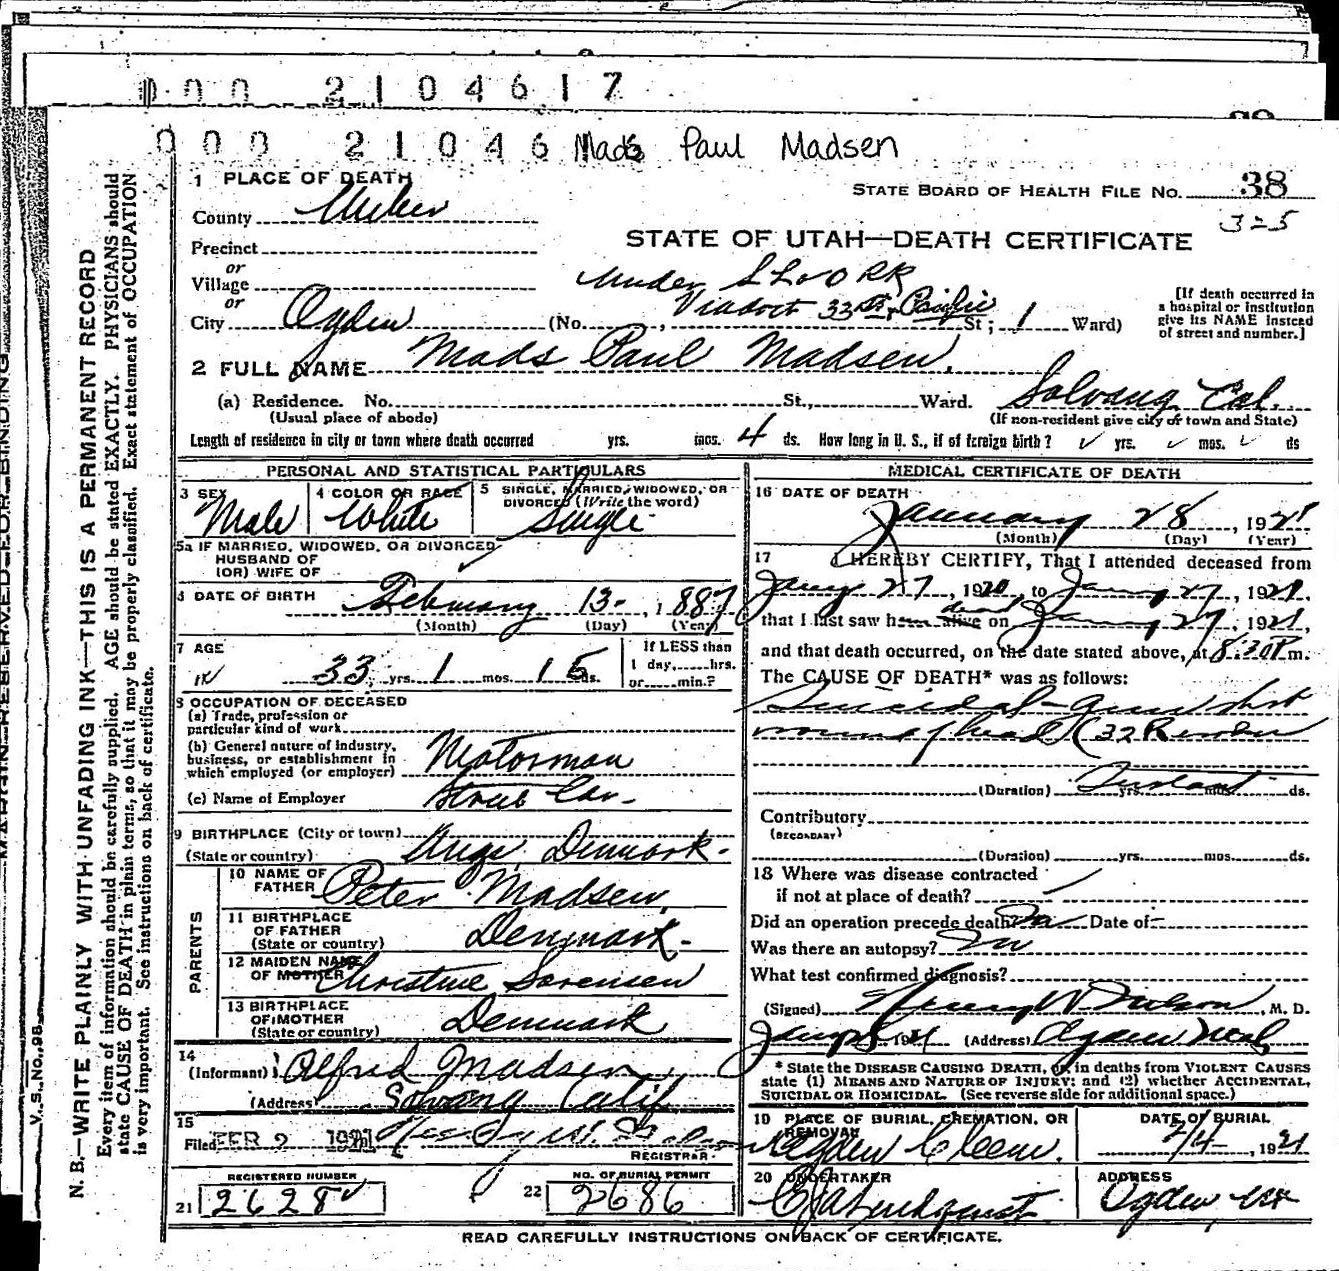 000 2104617
000 21046 Mads Paul Madsen
1 PLACE OF DEATH
STATE BOARD OF HEALTH FILE NO. 38
325
County Weber
STATE OF UTAH—DEATH CERTIFICATE
Precinct
or
Village
or
Under
Viaduct 33rd & Pacific
City Ogden (No. , St; 1 Ward)
[If death occurred in
a hospital or institution
give its NAME instead
of street and number.]
2 FULL NAME Mads Paul Madsen
(a) Residence. No. St., Ward. Solvang Cal.
(Usual place of abode) (If non-resident give city or town and State)
Length of residence in city or town where death occurred yrs. mos. 4 ds. How long in U. S., if of foreign birth? yrs. mos. ds
PERSONAL AND STATISTICAL PARTICULARS
3 SEX Male
4 COLOR OR RACE White
5 SINGLE, MARRIED, WIDOWED, OR
DIVORCED (Write the word)
Single
5a IF MARRIED, WIDOWED, OR DIVORCED
HUSBAND OF
(OR) WIFE OF
6 DATE OF BIRTH February 13 - 1887
(Month) (Day) (Year)
7 AGE
33 yrs. 1 mos. 15 ds.
If LESS than
1 day,......hrs.
or......min.?
8 OCCUPATION OF DECEASED
(a) Trade, profession or
particular kind of work
(b) General nature of industry,
business, or establishment in
which employed (or employer) Motorman
(c) Name of Employer Street Car
9 BIRTHPLACE (City or town)
(State or country) Denmark.
PARENTS
10 NAME OF
FATHER Peter Madsen
11 BIRTHPLACE
OF FATHER
(State or country) Denmark
12 MAIDEN NAME
OF MOTHER Christine Sorensen
13 BIRTHPLACE
OF MOTHER
(State or country) Denmark
14
(Informant) Alfred Madsen
(Address) Solvang Calif
15
Filed FEB 2 1921
REGISTRAR.
REGISTERED NUMBER
21 2628
NO. OF BURIAL PERMIT
22 2686
MEDICAL CERTIFICATE OF DEATH
16 DATE OF DEATH
January 28, 1921
(Month) (Day) (Year)
17 I HEREBY CERTIFY, That I attended deceased from
Jany 27, 1920, to Jany 27, 1921,
that I last saw him alive dead on Jany 27, 1921,
and that death occurred, on the date stated above, at 8:30 P m.
The CAUSE OF DEATH* was as follows:
Suicidal - gun shot
wound of head (32 Revolver
(Duration) Instant yrs. mos. ds.
Contributory
(SECONDARY)
(Duration) yrs. mos. ds.
18 Where was disease contracted
if not at place of death?
Did an operation precede death? No Date of
Was there an autopsy? No
What test confirmed diagnosis?
(Signed) M. D.
1921 (Address) Ogden Utah
* State the DISEASE CAUSING DEATH, or, in deaths from VIOLENT CAUSES
state (1) MEANS AND NATURE OF INJURY; and (2) whether ACCIDENTAL,
SUICIDAL OR HOMICIDAL. (See reverse side for additional space.)
19 PLACE OF BURIAL, CREMATION, OR
REMOVAL
Ogden Cem.
DATE OF BURIAL
2/4, 1921
20 UNDERTAKER
ADDRESS
Ogden, Ut
READ CAREFULLY INSTRUCTIONS ON BACK OF CERTIFICATE.
MARGIN RESERVED FOR BINDING
V. S. No. 98
N. B.—WRITE PLAINLY WITH UNFADING INK—THIS IS A PERMANENT RECORD
Every item of information should be carefully supplied. AGE should be stated EXACTLY. PHYSICIANS should
state CAUSE OF DEATH in plain terms, so that it may be properly classified. Exact statement of OCCUPATION
is very important. See instructions on back of certificate.